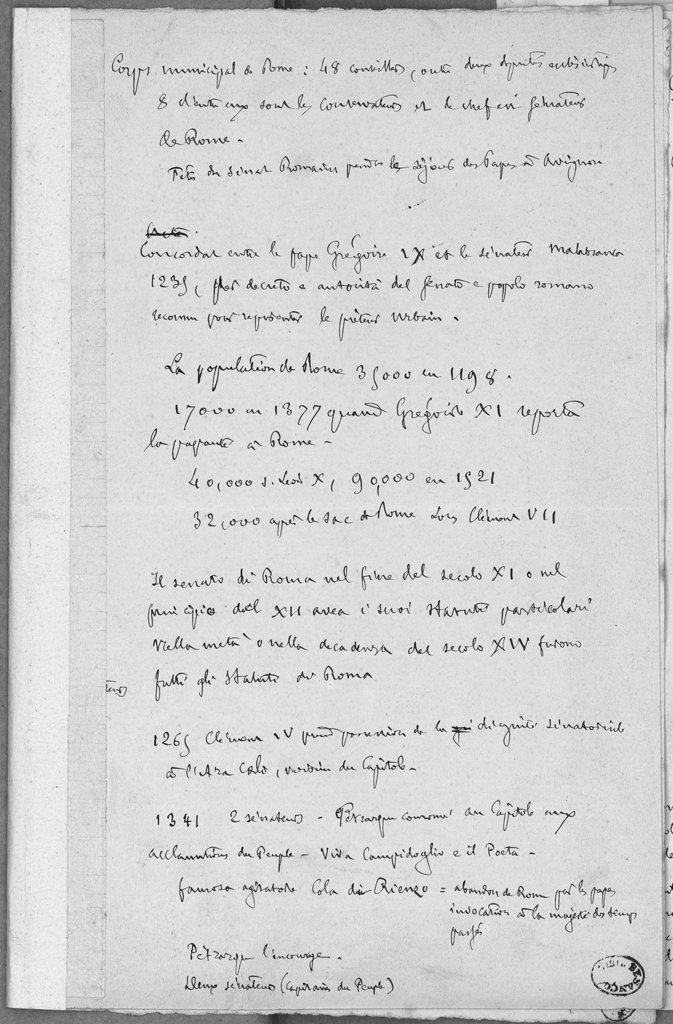 Corps municipal de Rome : 48 conseillers, outre deux députés ecclésiastiques
8 d'entre eux sont les conservateurs et le chef est sénateur
de Rome -
du sénat Romain pendant le séjour des Papes à Avignon
Concordat entre le pape Grégoire IX et le sénateur Malabranca
1235, per decreto e autorità del senato e popolo romano
reconnu pour représenter le préteur urbain.
La population de Rome 35000 en 1198.
17000 en 1377 quand Grégoire XI reporta
la papauté à Rome -
40,000 s. Léon X, 90,000 en 1521
32,000 après le sac de Rome sous Clément VII
Il senato di Roma nel fine del secolo XI o nel
principio del XII avea i suoi statuti particolari
Nella metà o nella decadenza del secolo XIV furono
fatti gli statuti di Roma
1265 Clément IV prend possession de la dignité sénatoriale
à l'Ara Coeli, voisin du Capitole -
1341 2 sénateurs - Pétrarque couronné au Capitole aux
acclamations du Peuple - Viva Campidoglio e il Poeta -
famoso agitatore Cola di Rienzo = abandon de Rome par les papes
invocation à la majesté des temps
passés
Pétrarque l'encourage -
Deux sénateurs (Capitaines du Peuple)